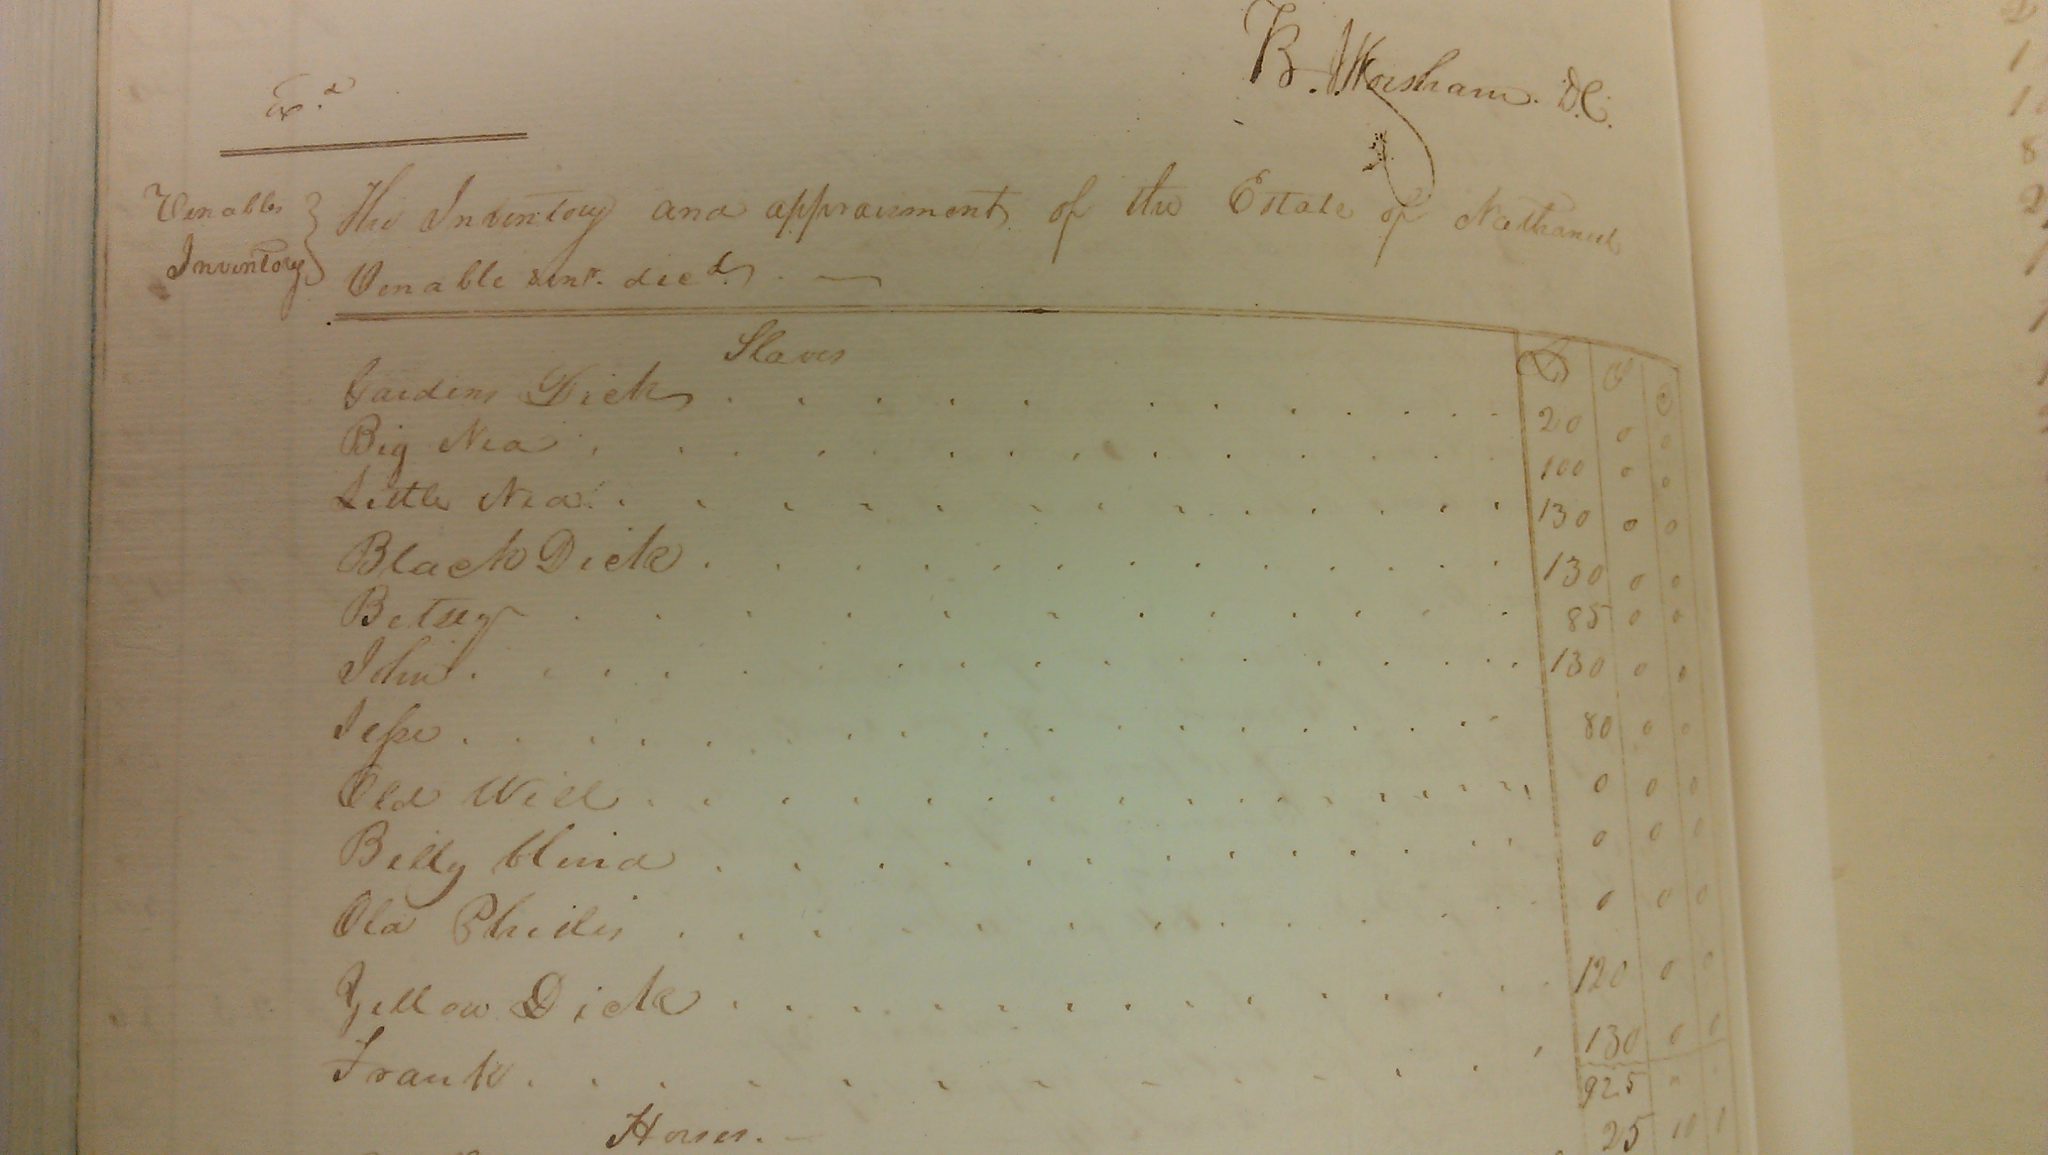 B. J. Worsham. D.C.
Ex.d
Venables Inventory
The Inventory and appraisment of the Estate of Nathaniel
Venable senr. decd.
Slaves
£ S D
Gardins Dick 20 0 0
Big Ned 100 0 0
Little Ned 130 0 0
Black Dick 130 0 0
Betsey 85 0 0
John 130 0 0
Jesse 80 0 0
Old Will 0 0 0
Billy blind 0 0 0
Old Phillis 0 0 0
Yellow Dick 120 0 0
Frank 130 0 0
925 " "
Horses.
25 10 0